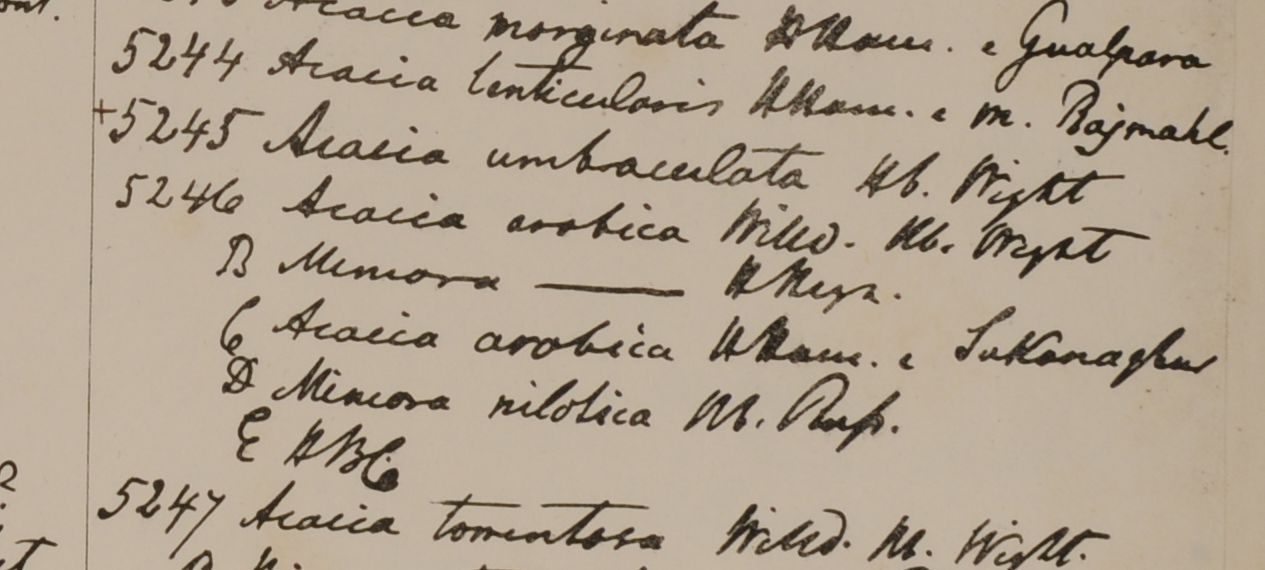 Acacia marginata HHam. e Gualpara
5244 Acacia lenticularis HHam. e m. Rajmahl.
+5245 Acacia umbraculata Hb. Wight
5246 Acacia arabica Willd. Hb. Wight
B Mimosa —— HHeyn.
C Acacia arabica HHam. e Sukanaghur
D Mimosa nilotica Hb. Russ.
E HBC
5247 Acacia tomentosa Willd. Hb. Wight.